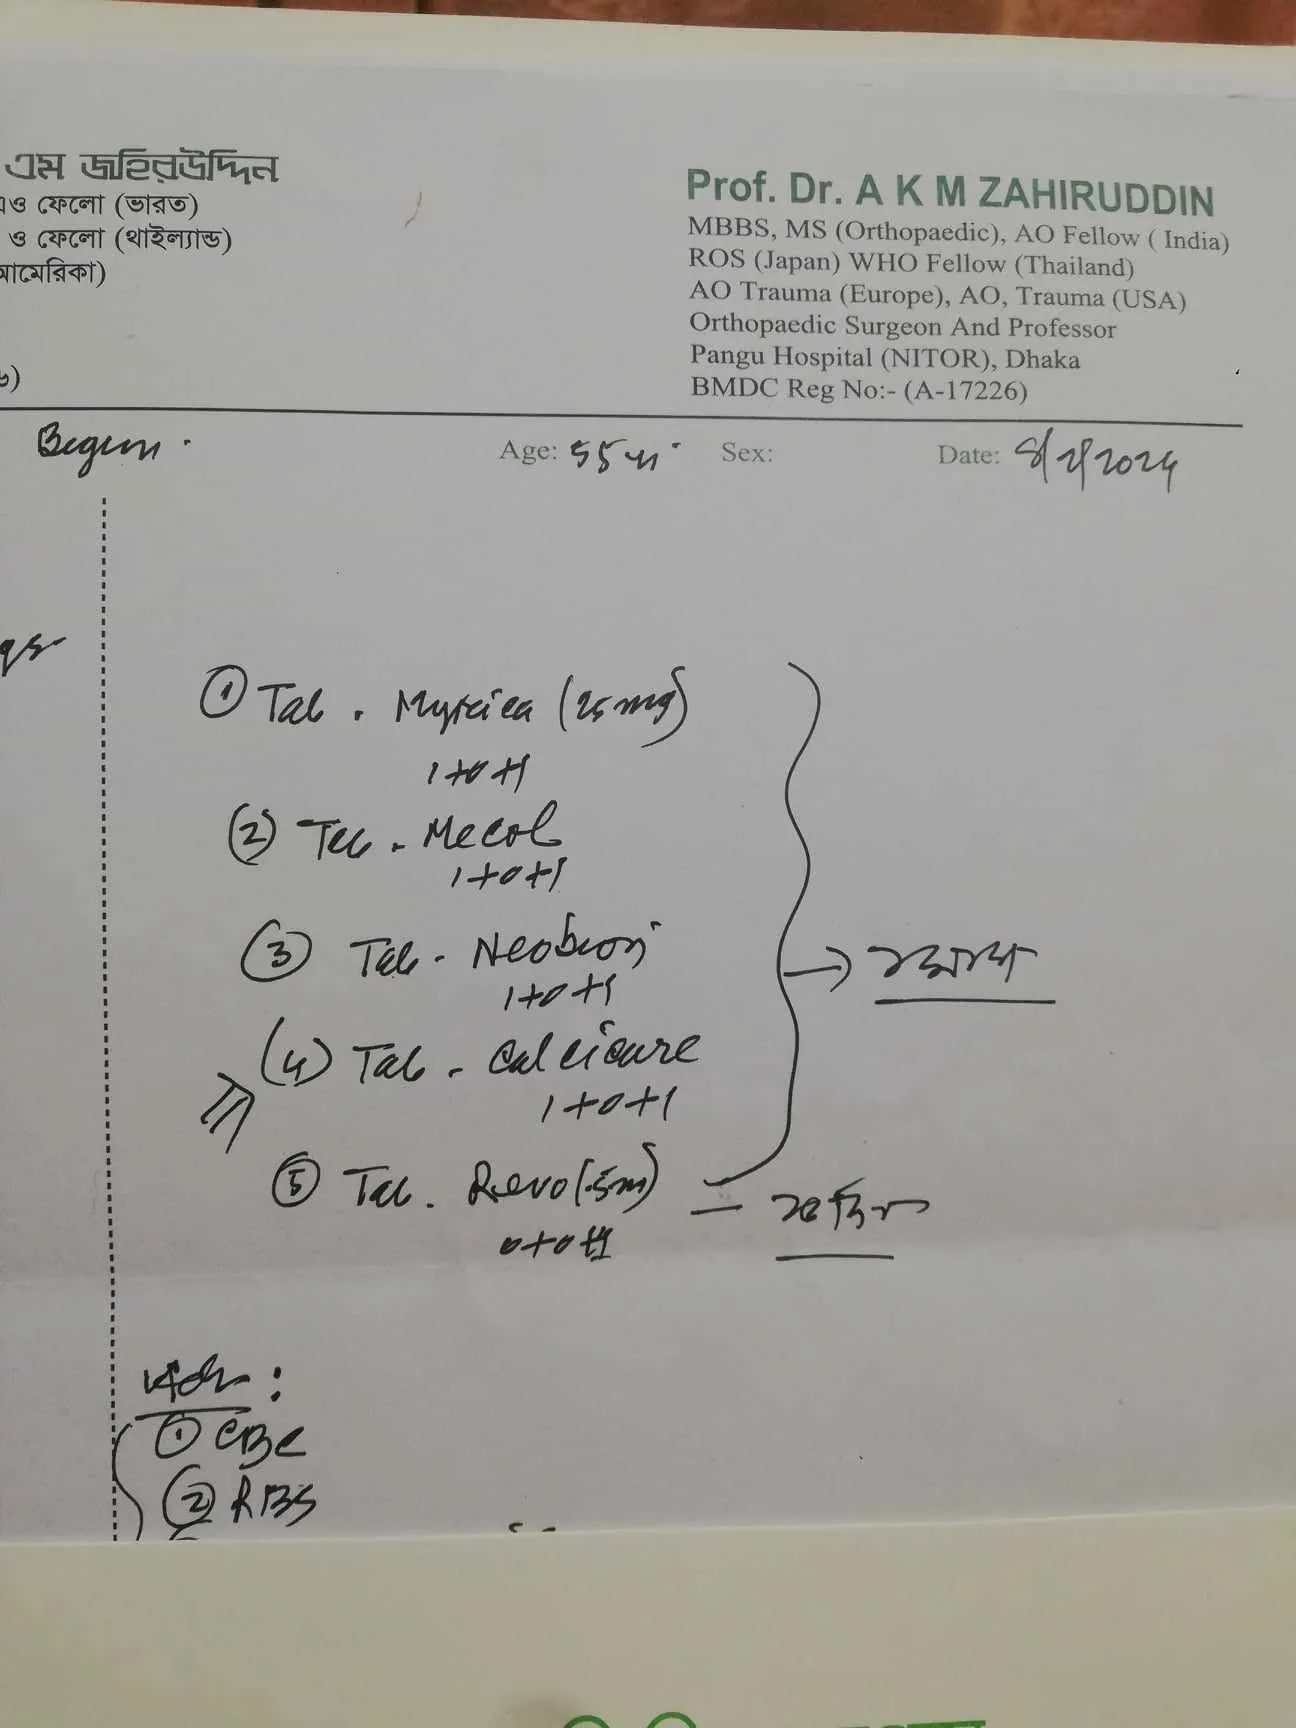 এম জহিরউদ্দিন
ও ফেলো (ভারত)
ও ফেলো (থাইল্যান্ড)
আমেরিকা)
৬)
Prof. Dr. A K M ZAHIRUDDIN
MBBS, MS (Orthopaedic), AO Fellow ( India)
ROS (Japan) WHO Fellow (Thailand)
AO Trauma (Europe), AO, Trauma (USA)
Orthopaedic Surgeon And Professor
Pangu Hospital (NITOR), Dhaka
BMDC Reg No:- (A-17226)
Begum. Age: 55 Sex: Date:
① Tab. (25 mg)
1+0+1
(2) Tab. Mecol
1+0+1
③ Tab.
1+0+1
(4) Tab. Calcicare
1+0+1
⑤ Tab. Revo (.5m)
0+0+1
① CBC
② RBS